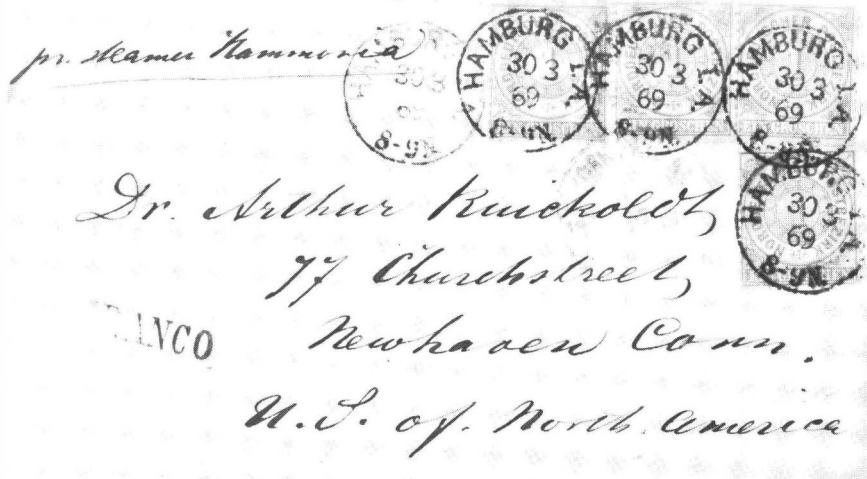 pr. steamer Hammonia
HAMBURG I.A.
30 3
69
8-9N.
HAMBURG I.A.
30 3
69
8-9N.
HAMBURG I.A.
30 3
69
HAMBURG I.A.
30 3
69
8-9N.
30 3
8-9N.
Dr. Arthur Ruickoldt
77 Churchstreet,
Newhaven Conn.
U.S. of North America
FRANCO